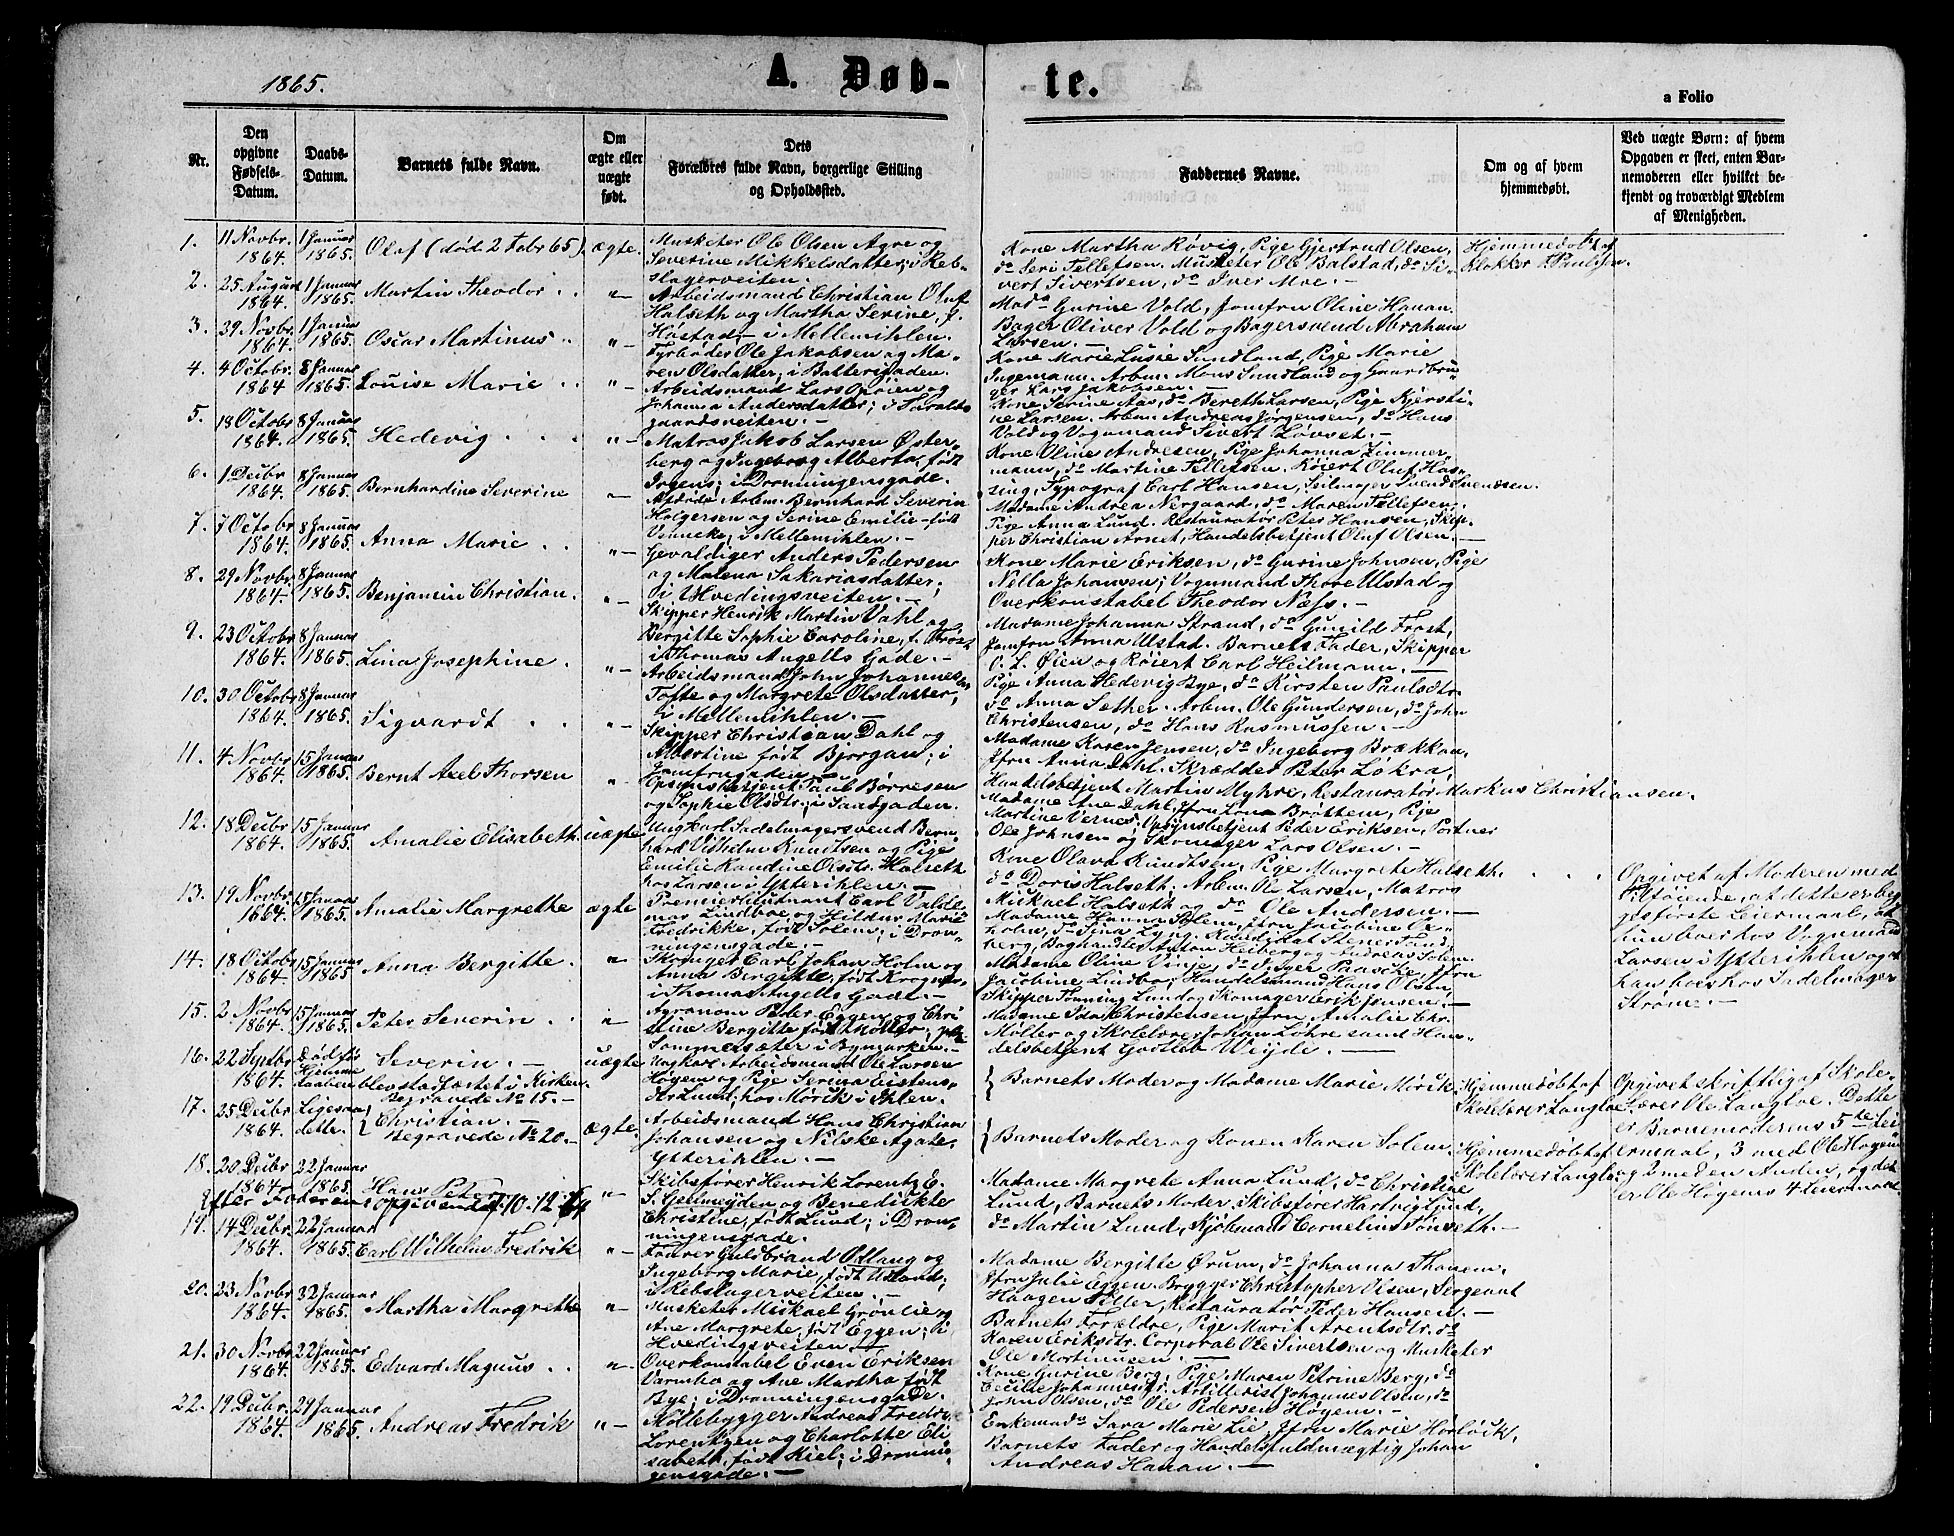 1865.
A. Døb-
te.
a Folio
Nr.
Den
opgivne
Fødsels-
Datum.
Daabs-
Datum.
Barnets fulde Navn.
Om
ægte eller
uægte
født.
Dets
Forældres fulde Navn, borgerlige Stilling
og Opholdssted.
Faddernes Navne.
Om og af hvem
hjemmedøbt.
Ved uægte Børn: af hvem
Opgaven er skeet, enten Bar-
nemoderen eller hvilket be-
kjendt og troværdigt Medlem
af Menigheden.
1. 11 Novbr. 1864. 1 Januar 1865. Olaf (død 2 Febr 65). ægte.
Musketer Ole Olsen Agre og
Severine Mikkelsdatter; i Reb-
slagerveiten.
Kone Martha Røvig, Pige Gjertrud Olsen,
do Seri Tellefsen. Musketer Ole Balstad, do Si-
vert Sivertsen, do Iver Moe. —
Hjemmedøbt af
Klokker Paulsen.
2. 25 August 1864. 1 Januar 1865. Martin Theodor. "
Arbeidsmand Christian Oluf
Halseth og Martha Serine, f.
Høstad; i Mellemihlen.
Mada Gurine Vold, Jomfru Oline Hanan.
Bager Oliver Vold og Bagersvend Abraham
Larsen. —
3. 29 Novbr. 1864. 1 Januar 1865. Oscar Martinus. "
Fyrbøder Ole Jakobsen og Ma-
ren Olsdatter; i Batterigaden.
Kone Marie Lusie Sundland, Pige Marie
Ingemann. Arbm. Mons Sundland og Gaardbru-
ger Lars Jakobsen. —
4. 4 Octobr. 1864 8 Januar 1865. Louise Marie. "
Arbeidsmand Lars Larsen Øien og
Johanna Andersdatter; i Haralds-
gaardsveiten. —
Kone Serine Aas, do Bereth Larsen, Pige Kjersti-
ne Larsen. Arbm. Andreas Jørgensen, do Hans
Vold og Vognmand Sivert Løvset. —
5. 18 Octobr 1864. 8 Januar 1865. Hedevig. "
Matros Jakob Larsen Øster-
berg og Ingeborg Alberta, født
Irgens; i Dronningensgade.
Kone Oline Andresen, Pige Johanna Zimmer-
mann, do Martine Tellefsen. Røiert Oluf Has-
sing, Typograf Carl Hansen, Seilmager Svend Svendsen.
6. 1 Decbr 1864. 8 Januar 1865. Bernhardine Severine "
Afdøde Arbm. Bernhard Severin
Holgersen og Serine Emilie født
Vinneke; i Mellemihlen. —
Madame Andrea Nergaard, do Maren Tellefsen,
Pige Anna Lund. Restauratør Peter Hansen, Skip-
per Christian Arnet, Handelsbetjent Oluf Olsen. —
7. 7 Octobr 1864. 8 Januar 1865. Anna Marie. "
Gevaldiger Anders Pedersen
og Malena Sakariasdatter;
i Hvedingsveiten. —
Kone Marie Eriksen, do Gurine Johnsen, Pige
Nella Johansen; Vognmand Thore Ulstad og
Overkonstabel Theodor Næss. —
8. 29 Novbr. 1864. 8 Januar 1865. Benjamin Christian. "
Skipper Henrik Martin Dahl og
Bergitte Sophie Caroline, f. Frost
i Thomas Angells Gade. —
Madame Johanna Strand, do Gunild Frost,
Jomfru Anna Ulstad. Barnets Fader, Skipper
O. L. Øien og Røiert Carl Heilmann. —
9. 23 Octobr 1864. 8 Januar 1865. Lina Josephine. "
Arbeidsmand John Johannesen
Tofte og Margrete Olsdatter;
i Mellemihlen. —
Pige Anna Hedevig Bye, do Kirsten Paulsdtr.
do Anna Sæther. Arbm. Ole Gundersen, do John
Christensen, do Hans Rasmussen. —
10. 30 Octobr 1864. 8 Januar 1865. Sigvardt. "
Skipper Christian Dahl og
Albertine født Bjørgan; i
Jomfrugaden.
Madame Karen Jensen, do Ingeborg Brækkan,
Jfru Anna Dahl. Skrædder Peter Løkra,
Handelsbetjent Martin Myhre, Restauratør Markus Christiansen.
11. 4 Novbr 1864. 15 Januar 1865. Bernt Axel Thorsen "
Opsynsbetjent Paul Børresen
og Sophie Olsdtr.; i Sandgaden.
Madame Ane Dahl, Jfru Lina Brøttem, Pige
Martine Vernes; Opsynsbetjent Peder Eriksen, Portner
Ole Johnsen og Skomager Lars Olsen. —
12. 18 Decbr 1864. 15 Januar 1865. Amalie Elisabeth. uægte
Ungkarl Sadelmagersvend Bern-
hard Vilhelm Knudtsen og Pige
Emilie Randine Olsdtr. Halseth
hos Larsen i Ytterihlen. —
Kone Olava Kundtsen, Pige Margrete Halseth.
do Doris Halseth. Arbm. Ole Larsen, Matros
Mickael Halseth og do Ole Andersen. —
Opgivet af Moderen med
Tilføiende, at dette er beg-
ges første Leiermaal, at
hun boer hos Vognmand
Larsen i Ytterihlen og at
han boer hos Sadelmager
Strøm. —
13. 19 Novbr. 1864. 15 Januar 1865. Amalie Margrethe ægte
Premierlieutnant Carl Valde-
mar Lindboe og Hildur Marie
Fredrikke, født Solem; i Dron-
ningensgade. —
Madame Hanna Solem, Jfru Jacobine Ox-
holm, do Sina Lyng. Kandidat Stener Lund,
Boghandler Anton Heiberg og Andreas Solem.
14. 18 Octobr 1864. 15 Januar 1865. Anna Bergitte. "
Skoma­ger Carl Johan Holm og
Anna Bergitte, født Krogness
i Thomas Angells Gade. —
Madame Oline Vinje, do Inger Paasche, Jfru
Jacobine Lindbo; Handelsmand Hans Olsen,
Skipper Flemming Lund og Skomager Erik Jensen. —
15. 2 Novbr 1864. 15 Januar 1865. Peter Severin. "
Agronom Peder Eggen og Chri
stine Bergitte født Møller; paa
Sommersæter i Bymarken. —
Madame Ida Christensen, Jfru Amalie Chr.
Møller og Skolelærer Johan Løhre samt Han-
delsbetjent Gottleb Weyde. —
16. 22 Septbr 1864. Død før Hjemme Daaben Severin. — uægte
blev stadfæstet i Kirken.
Begravede No 15. —
Ungkarl Arbeidsmand Ole Larsen
Høgen og Pige Serina Eistens-
dtr. Lund; hos Mörik i Ihlen.
Barnets Moder og Madame Marie Mörik
Hjemmedøbt af
Skolelærer Langloe.
Opgivet skriftlig af Skole-
lærer Ole Langloe. Dette
er Barnemoderens 5te Lei
ermaal, 3 med Ole Høgen
og 2 med en Anden, og det
er Ole Høgens 4 Leiermaal.
17. 25 Decbr 1864. Ligesaa dette. Christian. — ægte.
Begravede No 20. —
Arbeidsmand Hans Christian
Johansen og Nilske Agate,
Ytterihlen. —
Barnets Moder og Konen Karen Solem
Hjemmedøbt af
Skolelærer Langloe
18. 20 Decbr 1864. 22 Januar 1865. Hans Peter "
efter Faderens opgivende 10-12-64
Skibsfører Henrik Lorentz E.
S. Gjelmeyden og Benedikte
Christine, født Lund; i Dron-
ningensgade.
Madame Margrete Anna Lund, do Christine
Lund, Barnets Moder, Skibsfører Hartvig Lund,
do Martin Lund, Kjøbmand Cornelius Tønseth. —
19. 14 Decbr 1864. 22 Januar 1865. Carl Wilhelm Fredrik "
Fourer Guldbrand Ottang og
Ingeborg Marie, født Ustand;
i Rebslagerveiten. —
Madame Bergitte Ørum, do Johanna Thanem,
Jfru Julie Eggen. Brygger Christopher Olsen, Sergeant
Haagen Eller, Restauratør Peder Hansen. —
20. 23 Novbr 1864. 22 Januar 1865. Martha Margrethe "
Musketer Mickael Grønlie og
Ane Margrete, født Eggen; i
Hvedingsveiten
Barnets Forældre, Pige Marit Arentsdtr. do
Karen Eriksdtr. Corporal Ole Sivertsen og Musketer
Ole Mortinusen. —
21. 30 Novbr 1864. 22 Januar 1865. Edvard Magnus. "
Overkonstabel Even Eriksen
Varmbo og Ane Martha født
Bye; i Dronningensgade.
Kone Gurine Berg, Pige Maren Petrine Berg, do
Cecilie Johannesdtr. Artillerist Johannes Olsen, do
John Olsen, do Ole Pedersen Høgem. —
22. 19 Decbr. 1864. 29 Januar 1865. Andreas Fredrik "
Møllebygger Andreas Fredr.
Lorentzen og Charlotte Eli
sabeth, født Kiel; i Dronnin-
gensgade. —
Enkemada Sara Marie Lie, Jfru Marie Horlöck,
Barnets Fader og Handelsfuldmægtig Johan
Andreas Hanan. —